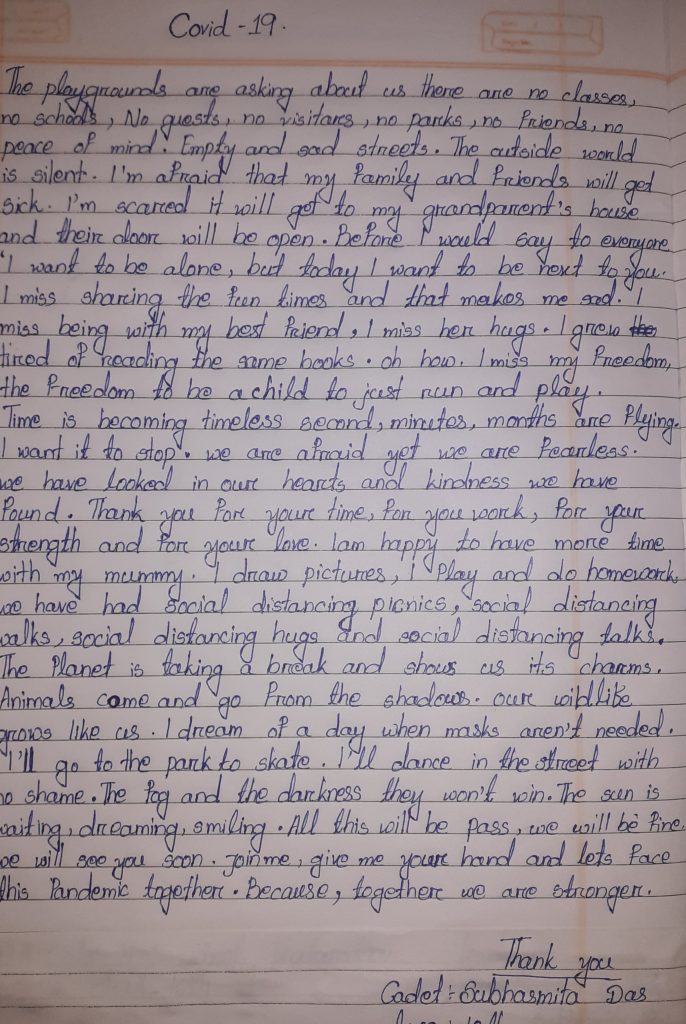 Covid - 19.
The playgrounds are asking about us there are no classes,
no schools, No guests, no visitors, no parks, no friends, no
peace of mind. Empty and sad streets. The outside world
is silent. I'm afraid that my family and friends will get
sick. I'm scared it will get to my grandparent's house
and their door will be open. Before I would say to everyone
"I want to be alone, but today I want to be next to you.
I miss sharing the fun times and that makes me sad. I
miss being with my best friend, I miss her hugs. I grew the
tired of reading the same books. oh how. I miss my freedom,
the freedom to be a child to just run and play.
Time is becoming timeless second, minutes, months are flying.
I want it to stop. we are afraid yet we are fearless.
we have looked in our hearts and kindness we have
found. Thank you for your time, for you work, for your
strength and for your love. Iam happy to have more time
with my mummy. I draw pictures, i play and do homework,
we have had social distancing picnics, social distancing
walks, social distancing hugs and social distancing talks.
The Planet is taking a break and shows us its charms.
Animals come and go from the shadows. our wildlife
grows like us. I dream of a day when masks aren't needed.
I'll go to the park to skate. I'll dance in the street with
no shame. The fog and the darkness they won't win. The sun is
waiting, dreaming, smiling. All this will be pass, we will be fine.
we will see you soon. join me, give me your hand and lets face
this Pandemic together. Because, together we are stronger.
Thank you
Cadet :- Subhasmita Das